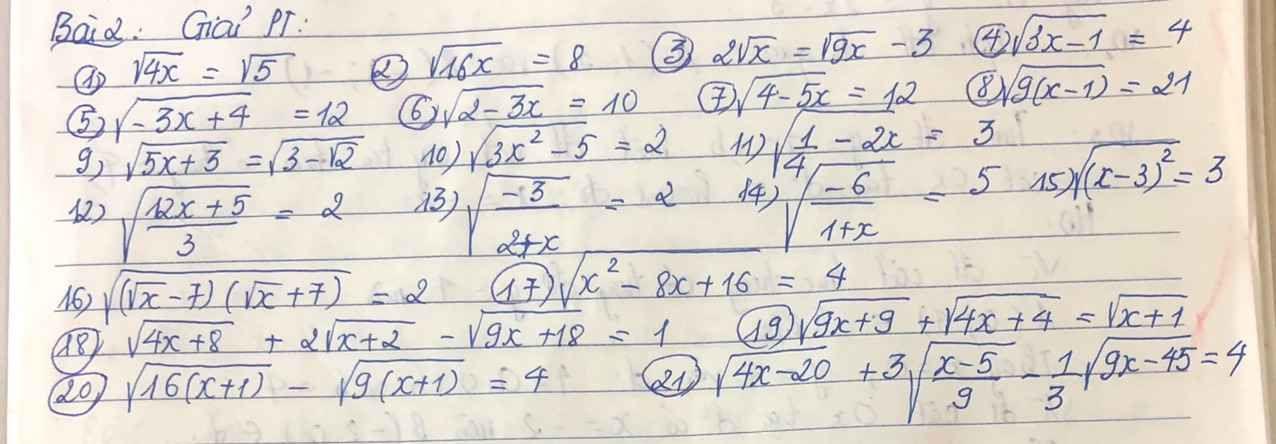 Bài 2: Giải PT:
① √(4x) = √5 ② √(16x) = 8 ③ 2√x = √(9x) - 3 ④ √(3x-1) = 4
⑤ √(-3x+4) = 12 ⑥ √(2-3x) = 10 ⑦ √(4-5x) = 12 ⑧ √(9(x-1)) = 21
9) √(5x+3) = √(3-√2) 10) √(3x²-5) = 2 11) √(1/4 - 2x) = 3
12) √((12x+5)/3) = 2 13) √(-3/(2+x)) = 2 14) √(-6/(1+x)) = 5 15) √((x-3)²) = 3
16) √((√x-7)(√x+7)) = 2 ⑰ √(x² - 8x + 16) = 4
⑱ √(4x+8) + 2√(x+2) - √(9x+18) = 1 ⑲ √(9x+9) + √(4x+4) = √(x+1)
⑳ √(16(x+1)) - √(9(x+1)) = 4 ㉑ √(4x-20) + 3√((x-5)/9) - 1/3√(9x-45) = 4